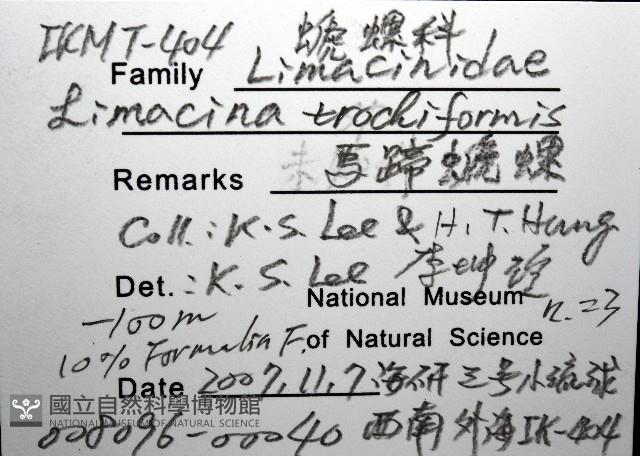 IKMT-404 蠵螺科
Family Limacinidae
Limacina trochiformis
Remarks 馬蹄蠵螺
Coll.: K.S. Lee & H.T. Hung
Det.: K.S. Lee 李坤瑄
National Museum n.=3
-100m
of Natural Science
10% Formalin F.
Date 2007.11.7 海研三号小琉球
國立自然科學博物館
NATIONAL MUSEUM OF NATURAL SCIENCE
008096-00040 西南外海IK-404